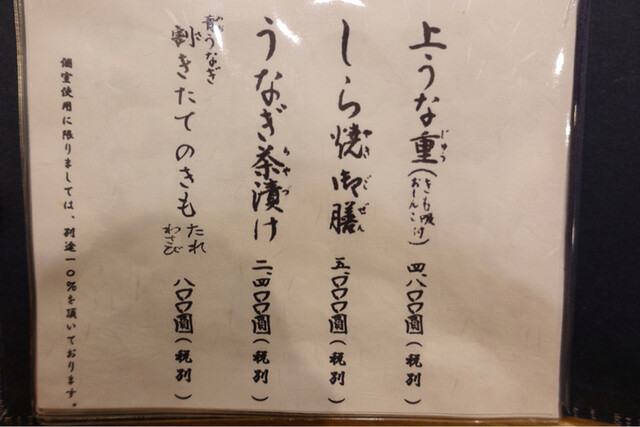 上うな重(きも吸付 おしんこ) 四、八〇〇圓(税別)
じゅう
しら焼御膳 五、〇〇〇圓(税別)
やき ごぜん
うなぎ茶漬け 二、四〇〇圓(税別)
ちゃづ
青うなぎ
割きたてのきも たれ わさび 八〇〇圓(税別)
さ
個室使用に限りましては、別途一〇%を頂いております。